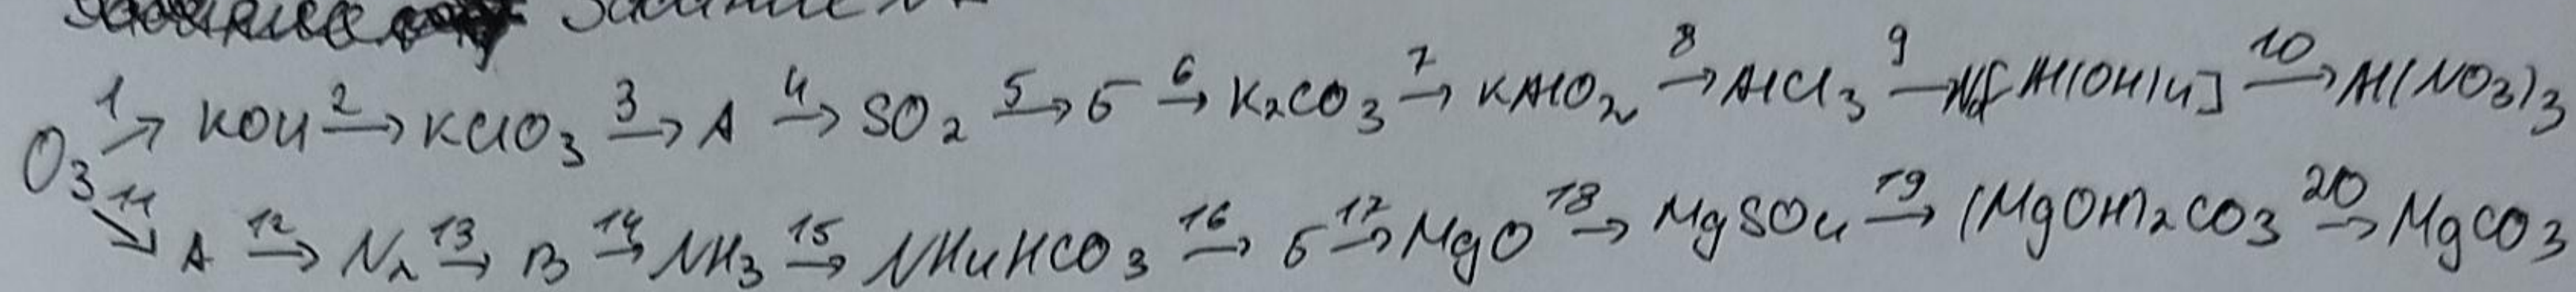 Задание
O₃ 1→ KOH 2→ KClO₃ 3→ A 4→ SO₂ 5→ Б 6→ K₂CO₃ 7→ KAlO₂ 8→ AlCl₃ 9→ [Al(OH)₄] 10→ Al(NO₃)₃
11→ A 12→ N₂ 13→ B 14→ NH₃ 15→ NH₄HCO₃ 16→ Б 17→ MgO 18→ MgSO₄ 19→ (MgOH)₂CO₃ 20→ MgCO₃